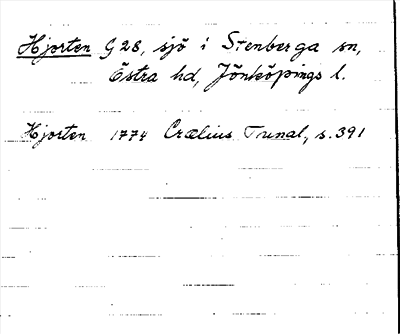 Hjorten G 28, sjö i Stenberga sn,
Östra hd, Jönköpings l.
Hjorten 1774 Crælius Tunal, s. 391